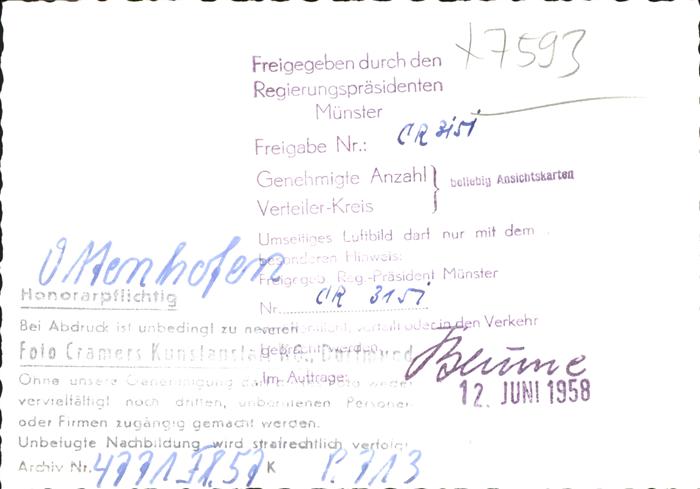 X7593
Freigegeben durch den
Regierungspräsidenten
Münster
Freigabe Nr.: CR 3151
Genehmigte Anzahl } beliebig Ansichtskarten
Verteiler-Kreis
Umseitiges Luftbild darf nur mit dem
besonderen Hinweis:
Freigegeb. Reg.-Präsident Münster
Nr. CR 3151
verteilt oder in den Verkehr
gebracht werden.
Im Auftrage: Blume
12. JUNI 1958
Ottenhofen
Honorarpflichtig
Bei Abdruck ist unbedingt zu
Foto Cramers Kunstanstalt KG., Dortmund
Ohne unsere Genehmigung darf weder
vervielfältigt noch dritten, Personen
oder Firmen zugängig gemacht werden.
Unbefugte Nachbildung wird strafrechtlich verfolgt
Archiv Nr. K P. 713